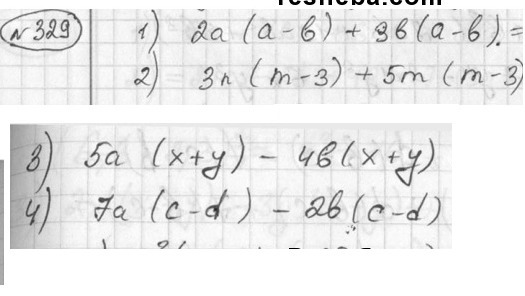 resheba.com
№ 329 1) 2a (a-b) + 3b (a-b) =
2) 3n (m-3) + 5m (m-3)
3) 5a (x+y) - 4b (x+y)
4) 7a (c-d) - 2b (c-d)